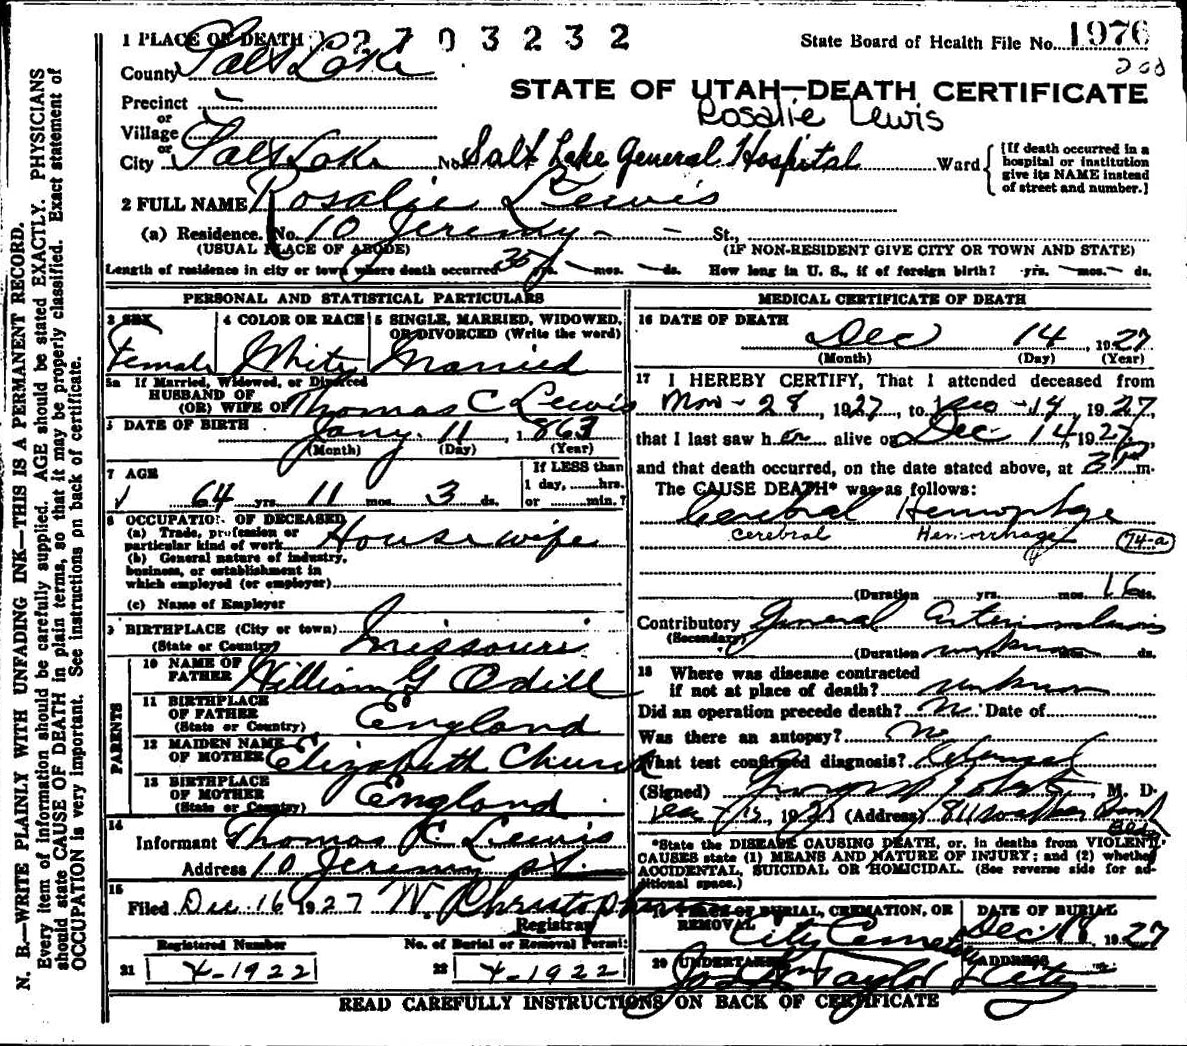 2703232
State Board of Health File No. 1976
200
1 PLACE OF DEATH
County Salt Lake
STATE OF UTAH—DEATH CERTIFICATE
Rosalie Lewis
Precinct
or
Village
or
City Salt Lake No. Salt Lake General Hospital Ward
[If death occurred in a hospital or institution give its NAME instead of street and number.]
2 FULL NAME Rosalie Lewis
(a) Residence. No. 10 Jeremy St.,
(USUAL PLACE OF ABODE) (IF NON-RESIDENT GIVE CITY OR TOWN AND STATE)
Length of residence in city or town where death occurred 35 yrs. — mos. — ds. How long in U. S., if of foreign birth? yrs. — mos. — ds.
PERSONAL AND STATISTICAL PARTICULARS
3 SEX
Female
4 COLOR OR RACE
White
5 SINGLE, MARRIED, WIDOWED, OR DIVORCED (Write the word)
Married
5a If Married, Widowed, or Divorced
HUSBAND OF
(OR) WIFE OF Thomas C Lewis
DATE OF BIRTH Jany. 11, 1863
(Month) (Day) (Year)
7 AGE
64 yrs. 11 mos. 3 ds.
If LESS than
1 day, ......hrs.
or ......min.?
8 OCCUPATION OF DECEASED
(a) Trade, profession or
particular kind of work Housewife
(b) General nature of industry,
business, or establishment in
which employed (or employer)
(c) Name of Employer
9 BIRTHPLACE (City or town)
(State or Country) Missouri
PARENTS
10 NAME OF
FATHER William G Odell
11 BIRTHPLACE
OF FATHER England
(State or Country)
12 MAIDEN NAME
OF MOTHER Elizabeth Church
13 BIRTHPLACE
OF MOTHER England
(State or Country)
14
Informant Thomas C. Lewis
Address 10 Jeremy st.
15
Filed Dec 16 1927 W. Christopherson
Registrar
Registered Number No. of Burial or Removal Permit
21 Y-1922 22 Y-1922
MEDICAL CERTIFICATE OF DEATH
16 DATE OF DEATH
Dec 14, 1927
(Month) (Day) (Year)
17 I HEREBY CERTIFY, That I attended deceased from
Nov-28, 1927, to Dec-14, 1927,
that I last saw h er alive on Dec. 14 1927,
and that death occurred, on the date stated above, at m.
The CAUSE DEATH* was as follows:
Cerebral Hemorrhage
cerebral Hemorrhage 74-a
(Duration yrs. mos. 16 ds.
Contributory General
(Secondary)
(Duration unknown yrs. mos. ds.
18 Where was disease contracted
if not at place of death? unknown
Did an operation precede death? No Date of
Was there an autopsy? No
What test confirmed diagnosis? Clinical
(Signed) M. D.
1927 (Address) Bank
Bldg
*State the DISEASE CAUSING DEATH, or, in deaths from VIOLENT
CAUSES state (1) MEANS AND NATURE OF INJURY; and (2) whether
ACCIDENTAL, SUICIDAL OR HOMICIDAL. (See reverse side for additional space.)
19 PLACE OF BURIAL, CREMATION, OR
REMOVAL City Cemetery
DATE OF BURIAL
Dec. 18 1927
20 UNDERTAKER
Jos Wm Taylor
ADDRESS
City
READ CAREFULLY INSTRUCTIONS ON BACK OF CERTIFICATE
N. B.—WRITE PLAINLY WITH UNFADING INK—THIS IS A PERMANENT RECORD.
Every item of information should be carefully supplied. AGE should be stated EXACTLY. PHYSICIANS
should state CAUSE OF DEATH in plain terms, so that it may be properly classified. Exact statement of
OCCUPATION is very important. See instructions on back of certificate.